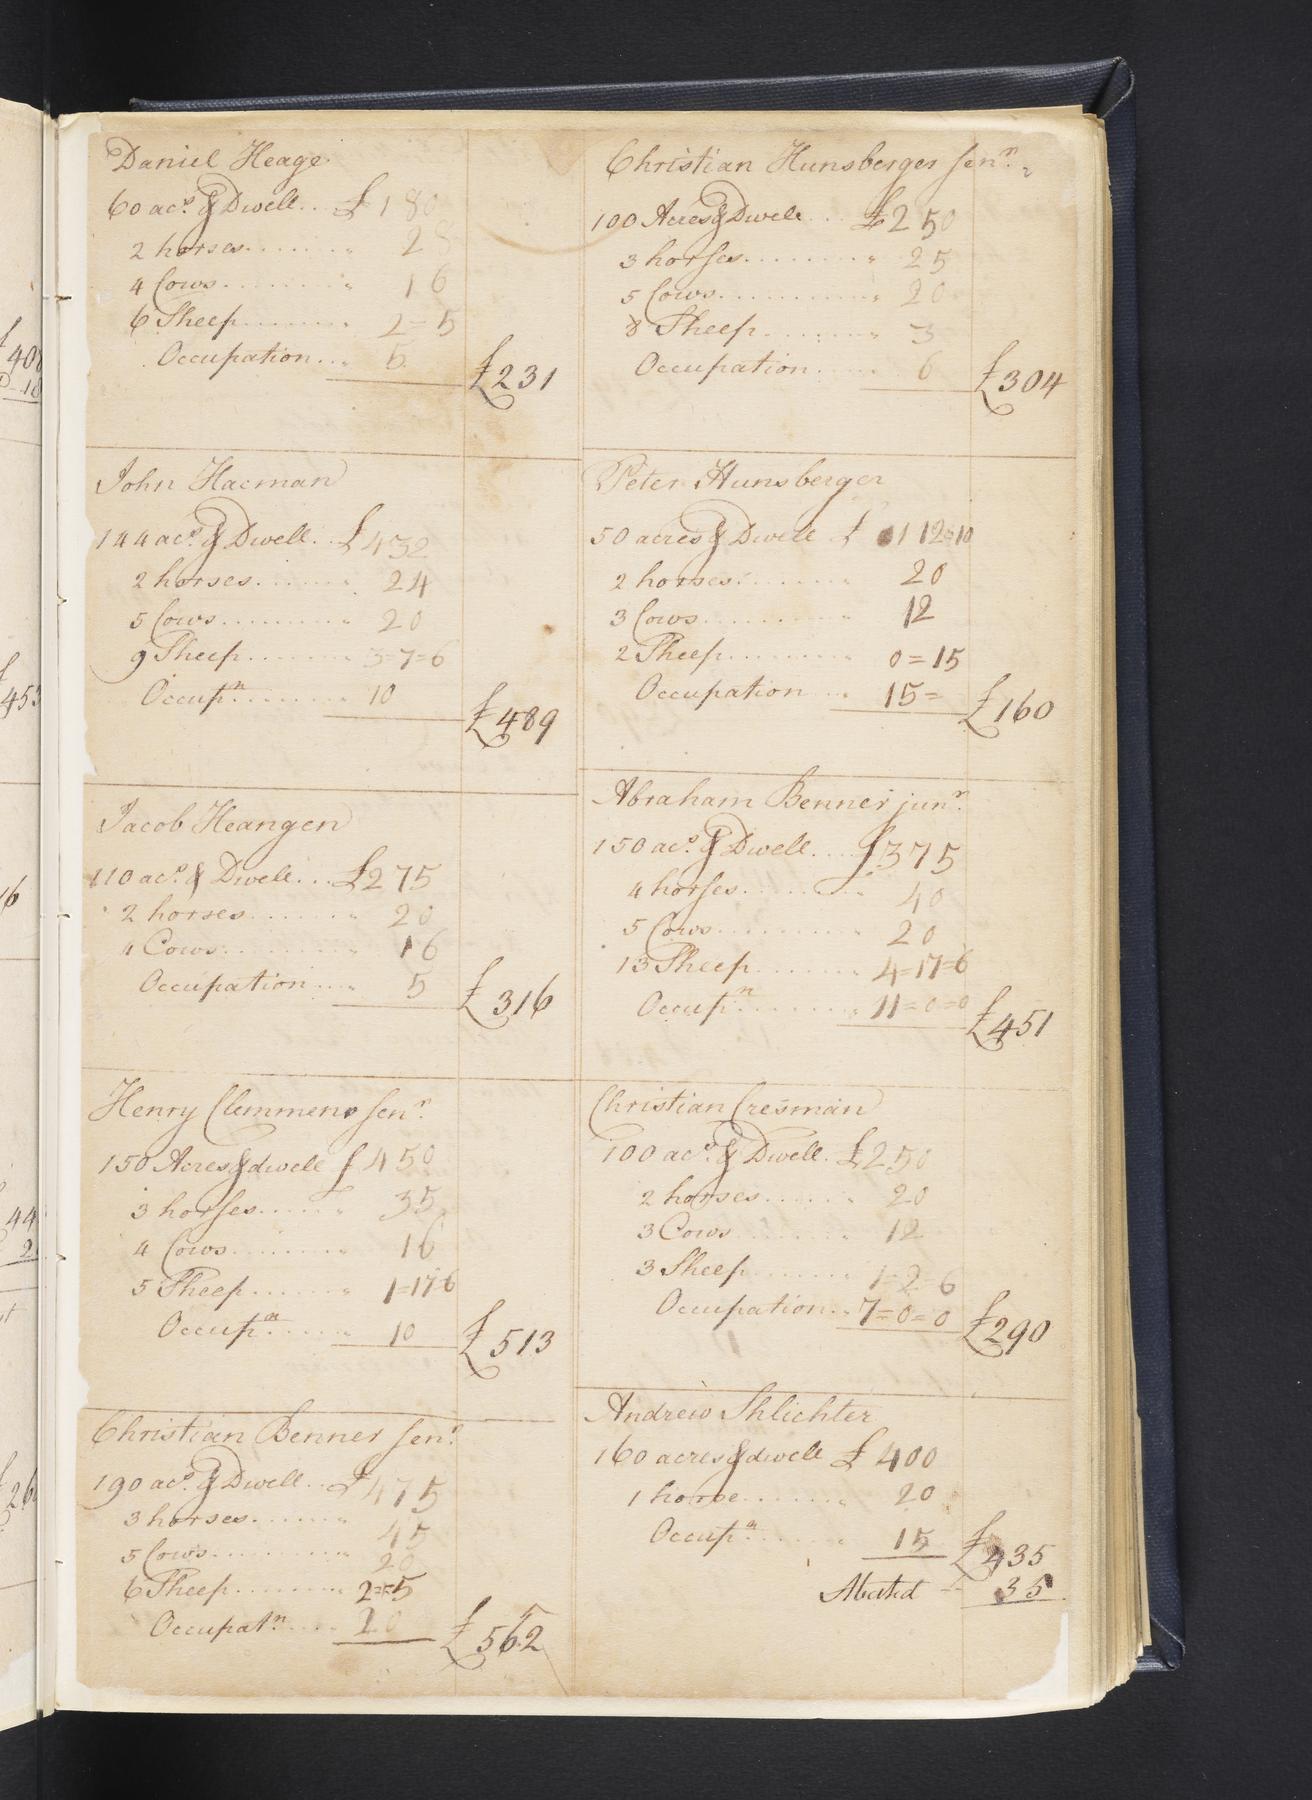 Daniel Heage
60 acs. & Dwell... £180
2 horses........ " 28
4 Cows......... " 16
6 Sheep........ " 2=5
Occupation... " 5
£231
John Hacman
144 acs. & Dwell.. £432
2 horses....... " 24
5 Cows......... " 20
9 Sheep....... 3=7=6
Occupn......... 10
£489
Jacob Heangen
110 acs. & Dwell... £275
2 horses....... " 20
4 Cows......... " 16
Occupation.... " 5
£316
Henry Clemmens senr.
150 Acres & dwell £450
3 horses...... " 35
4 Cows......... " 16
5 Sheep....... " 1=17=6
Occupn...... " 10
£513
Christian Benner senr.
190 acs. & Dwell... £475
3 horses....... " 45
5 Cows.......... " 20
6 Sheep........ " 2=5
Occupatn..... 20
£562
Christian Hunsberger senr.
100 Acres & Dwell... £250
3 horses........ " 25
5 Cows........... " 20
8 Sheep........ " 3
Occupation..... 6
£304
Peter Hunsberger
50 acres & Dwell £ 112=10
2 horses........ " 20
3 Cows.......... " 12
2 Sheep......... " 0=15
Occupation... " 15=
£160
Abraham Benner junr.
150 acs. & Dwell.... £375
4 horses........ " 40
5 Cows.......... " 20
13 Sheep....... " 4=17=6
Occupn........ " 11=0=0
£451
Christian Cresman
100 acs. & Dwell. £250
2 horses....... " 20
3 Cows......... " 12
3 Sheep....... 1=2=6
Occupation... 7=0=0
£290
Andrew Shlichter
160 acres & dwell £400
1 horse........ " 20
Occupn....... " 15
£435
Abated 35